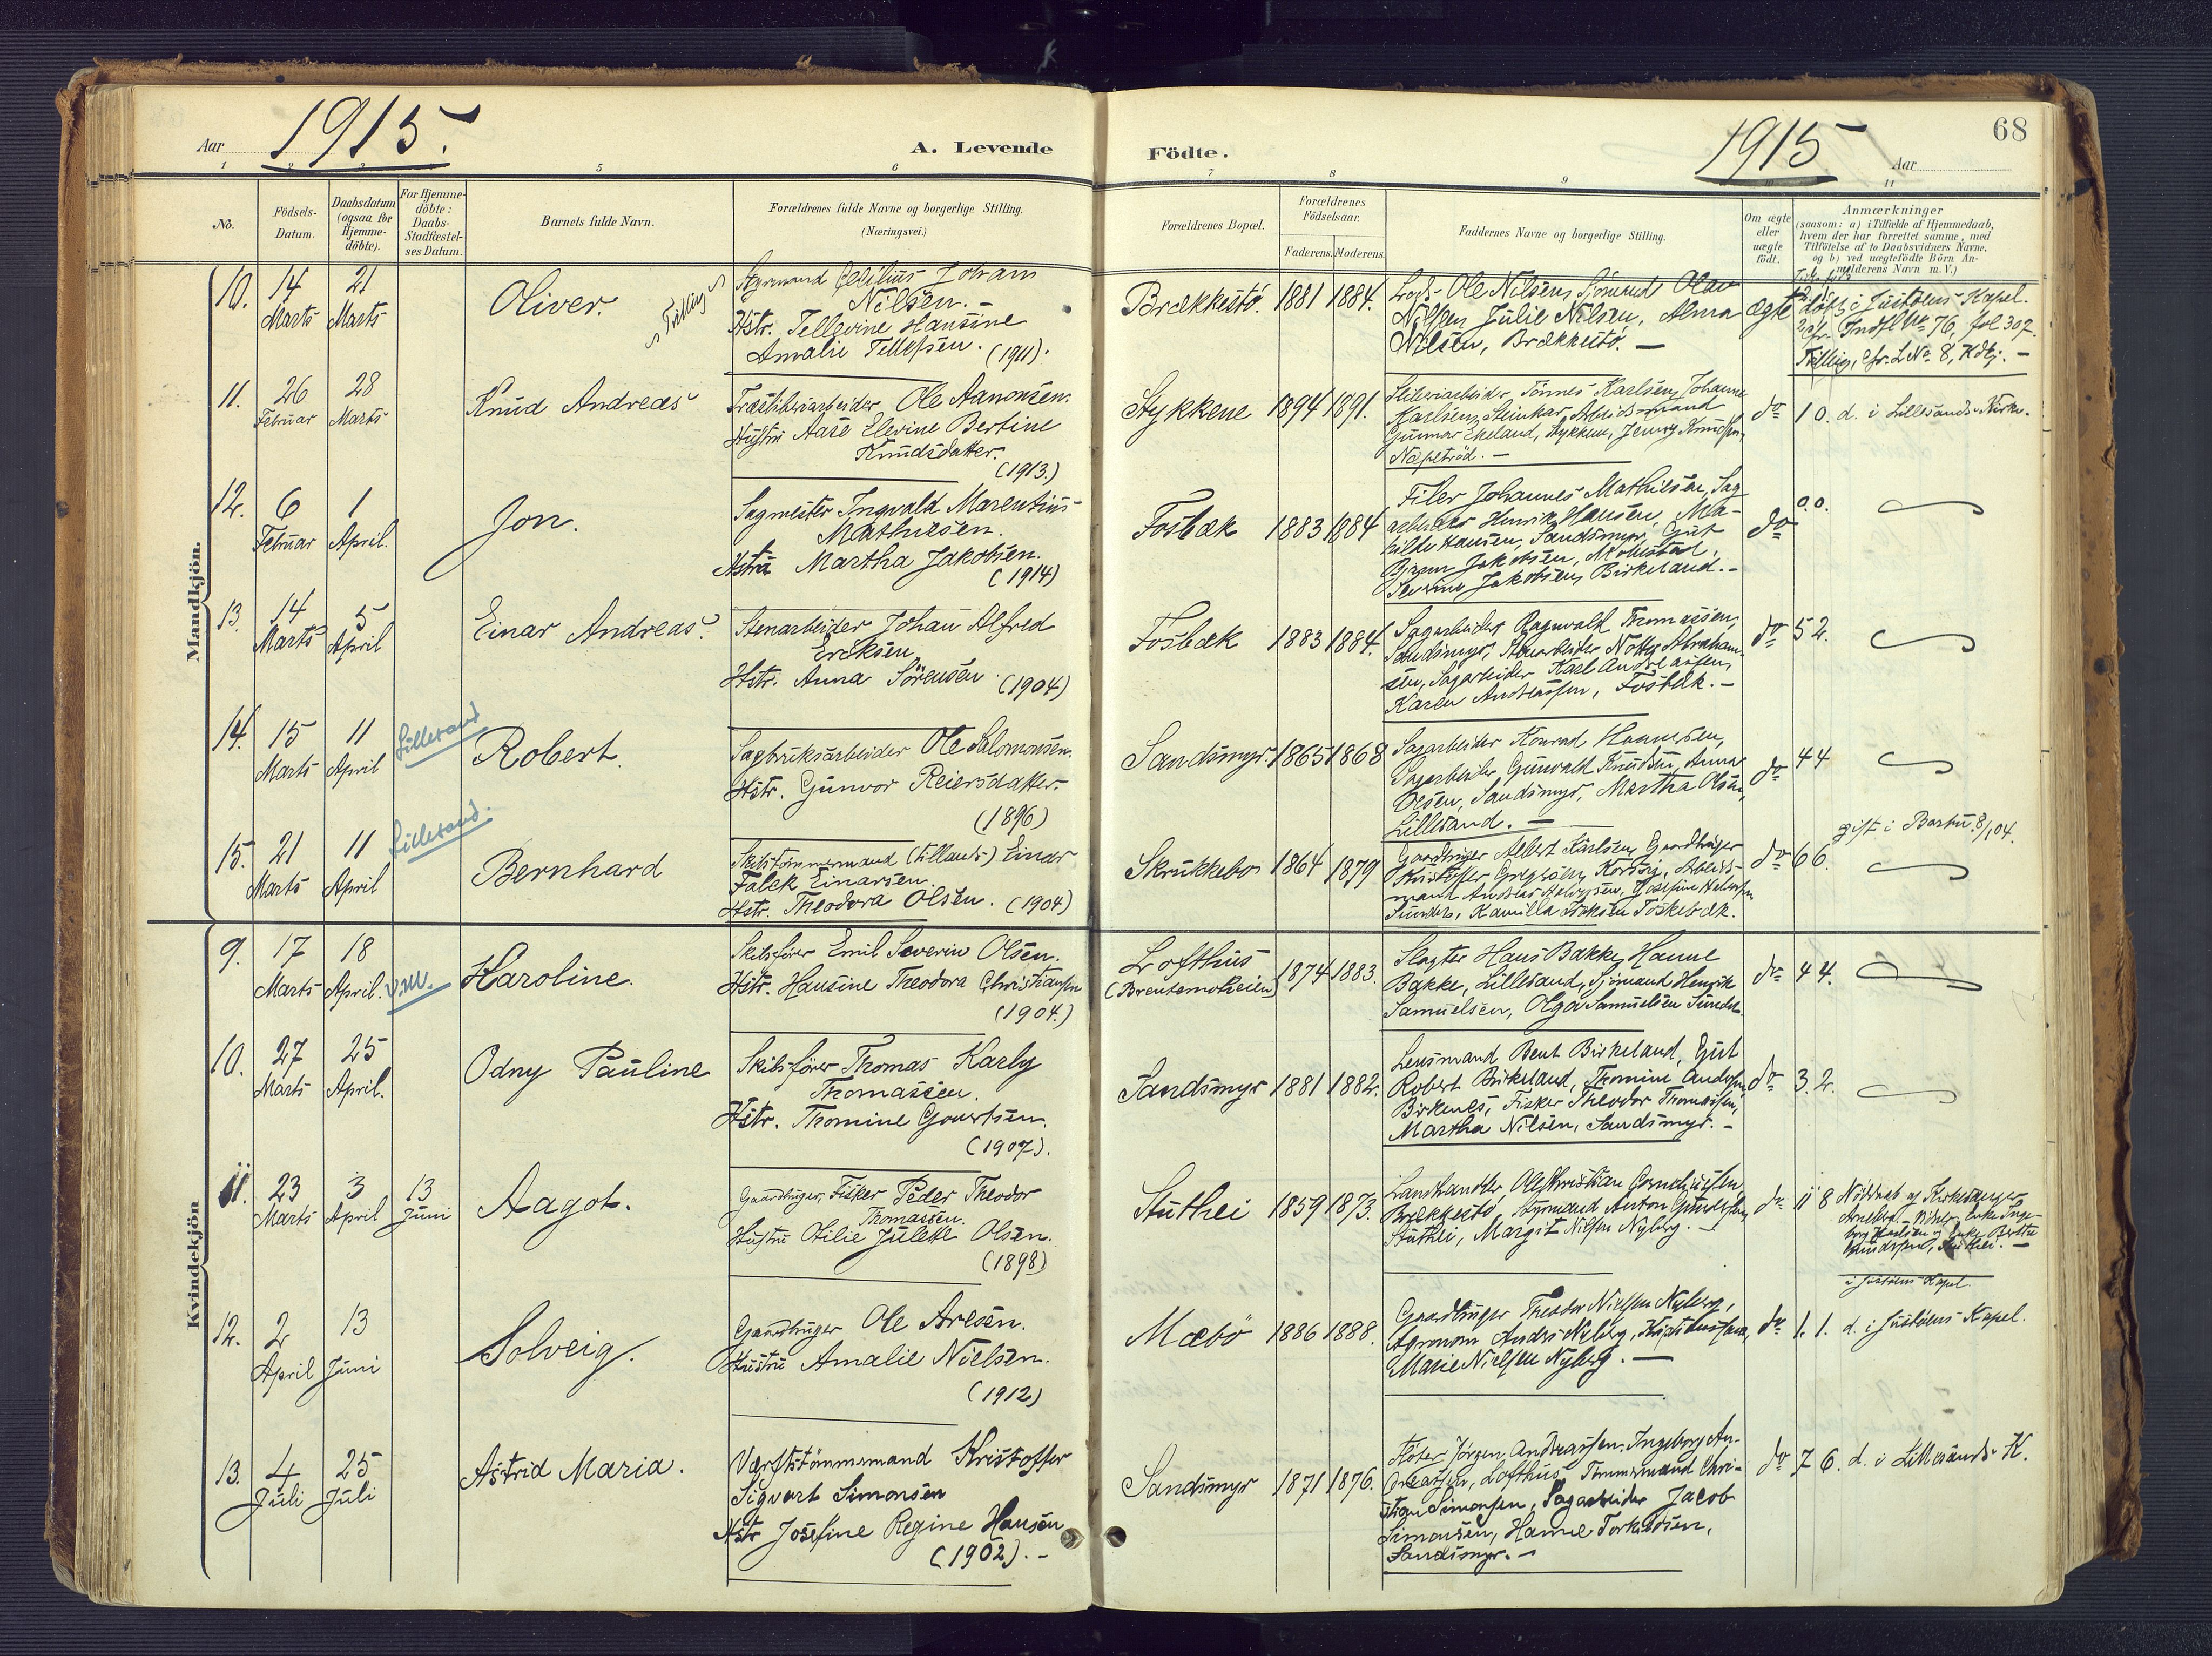 Aar 1915. A. Levende
Födte. 1915 Aar 68
1 2 3 4 5 6 7 8 9 10 11
No.
Födsels-
Datum.
Daabsdatum
(ogsaa for
Hjemme-
döbte).
For Hjemme-
döbte:
Daabs-
Stadfæstel-
ses Datum.
Barnets fulde Navn.
Forældrenes fulde Navne og borgerlige Stilling.
(Næringsvei.)
Forældrenes Bopæl.
Forældrenes
Födselsaar.
Faderens. Moderens.
Faddernes Navne og borgerlige Stilling.
Om ægte
eller
uægte
födt.
Anmærkninger
(saasom: a) i Tilfælde af Hjemmedaab,
hvem der har forrettet samme, med
Tilföielse af to Daabsvidners Navne,
og b) ved uægtefödte Börn An-
melderens Navn m. V.)
Mandkjön.
10. 14 21
Marts Marts
Oliver.
Tvilling
Styrmand Johan
Nilsen.
Hstr. Tellevine Hansine
Amalie Tellefsen. (1911).
Brækkestö. 1881 1884.
Lods Ole Nilsen, Sjömand Olav
Nilsen, Julie Nilsen, Alma
Nilsen, Brækkestö.
ægte
döbt i Justöens Kapel.
cfr. No 76, fol 307.
Tvilling, cfr. L No 8, Kdkj.
11. 26 28
Februar Marts
Knud Andreas
Træsliberiarbeider Ole Aanonsen.
Hustru Aase Elevine Bertine
Knudsdatter.
(1913.)
Stykkene 1894 1891.
Sliberiarbeider Tönnes Karlsen, Johanne
Karlsen, Steinkar, Arbeidsmand
Gunnar Ekeland, Stykkene, Jenny Knudsen,
Næpetröd.
do 1 0. d. i Lillesands Kirke.
12. 6 1
Februar April.
Jon.
Sagmester Ingvald Marentius
Mathiesen.
Hstru Martha Jakobsen.
(1914)
Fosbæk 1883 1884
Filer Johannes Mathiesen, Sag-
arbeider Henrik Hansen, Ma-
thilde Hansen, Sandsmyr, Gut
Bjarne Jakobsen, Molustad,
Severine Jakobsen, Birkeland.
do 0.0.
13. 14 5
Marts April
Einar Andreas.
Stenarbeider Johan Alfred
Ericksen
Hstr. Anna Sörensen (1904)
Fosbæk 1883 1884.
Sagarbeider Ragnvald Thomassen,
Sandsmyr, Stenarbeider Notto Abraham-
sen, Sagarbeider Karl Andreassen,
Karen Andreassen, Fosbæk.
do 5 2.
14. 15 11
Marts April
Lillesand
Robert.
Sagbruksarbeider Ole Salomonsen.
Hstr. Gunvor Reiersdatter.
(1896)
Sandsmyr. 1865 1868
Sagarbeider Konrad Hansen,
Sagarbeider Gunvald Knudsen, Anna
Olsen, Sandsmyr, Martha Olsen,
Lillesand.
do 4 4
15. 21 11
Marts April
Lillesand.
Bernhard
Skibstömmermand (tillands) Einar
Falck Einarsen.
Hstr. Theodora Olsen. (1904)
Skrukkebo 1864 1879
Gaardbruger Albert Karlsen, Gaardbruger
Kristoffer Gregersen, Korsvig, Arbeids-
mand Andreas Halvorsen, Josefine Halvorsen
Sundet, Kamilla Isaksen Fiskebæk.
do 6 6.
gift i Barbu 8/1 04.
Kvindekjön
9. 17 18
Marts April.
Karoline.
Skibsförer Emil Severin Olsen.
Hstr. Hansine Theodora Christiansen
(1904.)
Lofthus
(Brentemoheien) 1874 1883.
Slagter Hans Bakke, Hanne
Bakke, Lillesand, Sjömand Henrik
Samuelsen, Olga Samuelsen Sundet.
do 4 4.
10. 27 25
Marts April.
Odny Pauline
Skibsförer Thomas Karly
Thomassen.
Hstr. Thomine Govertsen.
(1907).
Sandsmyr 1881 1882.
Lensmand Bent Birkeland, Gut
Robert Birkeland, Thomine Andersen
Birkenes, Fisker Theodor Thomassen,
Martha Nilsen, Sandsmyr.
do 3. 2.
11. 23 3 13
Marts April Juni
Aagot.
Gaardbruger, Fisker Peder Theodor
Thomassen.
Hustru Otilie Julette Olsen.
(1898)
Stuthei 1859 1873.
Landhandler Ole Christian Corneliussen,
Brækkestö, Styrmand Anton Gundersen,
Stuthei, Margit Nielsen Nyberg.
do 11 8
Nöddaab af Kirkesanger
i Justöens Kapel.
12. 2 13
April Juni
Solveig.
Gaardbruger Ole Aresen.
Hustru Amalie Nielsen.
(1912)
Mæbö 1886 1888.
Gaardbruger Theodor Nielsen Nyberg,
Agronom Anders Nyberg,
Marie Nielsen Nyberg.
do 1. 1. d. i Justöens Kapel.
13. 4 25
Juli Juli
Astrid Maria.
Værftstömmermand Kristoffer
Sigvart Simonsen
Hstr Josefine Regine Hansen
(1902).
Sandsmyr 1871 1876.
Flöter Jörgen Andreassen, Ingeborg An-
dreassen, Lofthus, Tömmermand Chri-
stian Simonsen, Sagarbeider Jacob
Simonsen, Hanne Torkildsen,
Sandsmyr.
do 7 6. d. i Lillesands K.